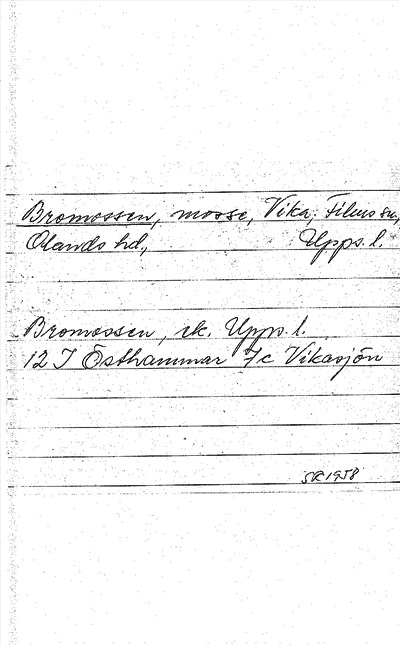 Bromossen, mosse, Vika, Films sn,
Olands hd, Upps. l.
Bromossen, sk. Upps. l.
12 I Östhammar 7c Vikasjön
SR 1958